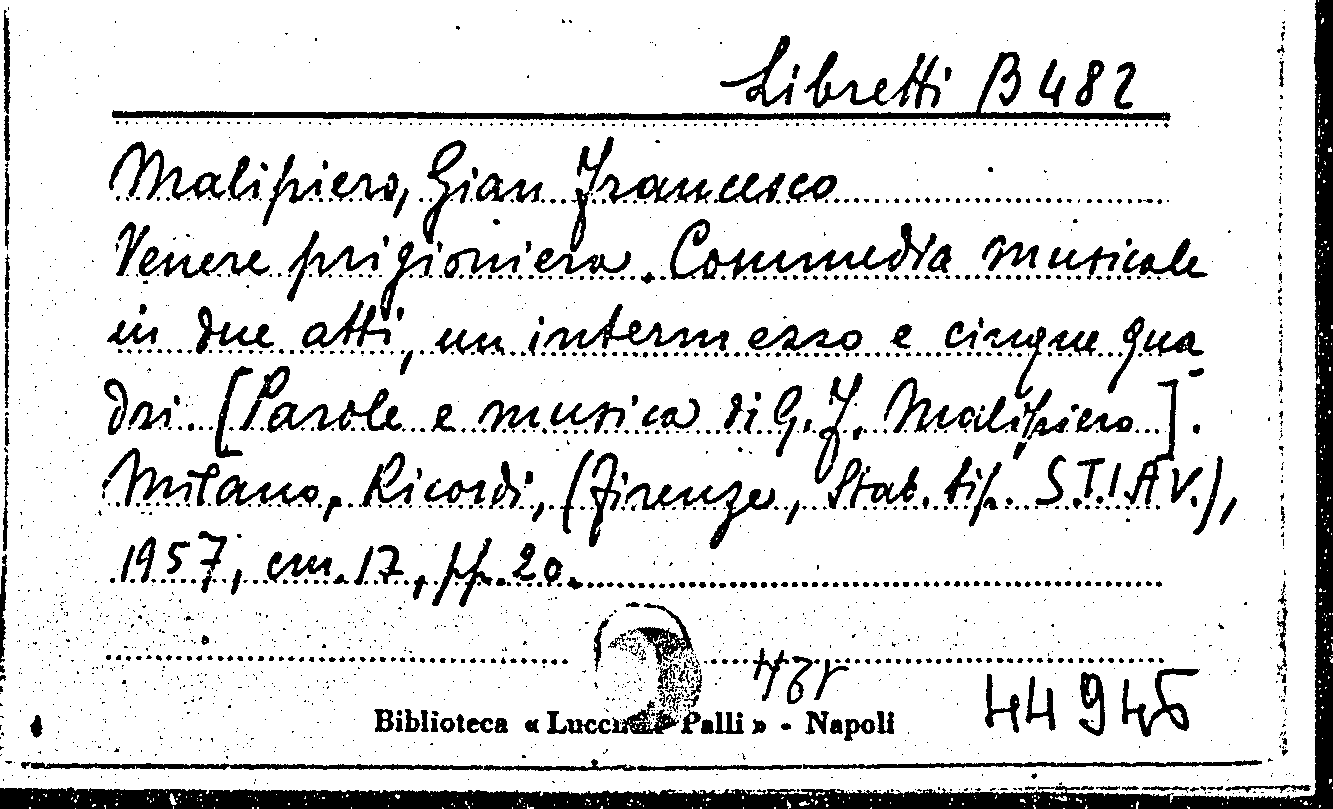 Libretti B 482
Malipiero, Gian Francesco
Venere prigioniera. Commedia musicale
in due atti, un intermezzo e cinque qua
dri. [Parole e musica di G. F. Malipiero].
Milano, Ricordi, (Firenze, Stab. tip. S.T.I.A.V.),
1957, cm. 17, pp. 20.
44945
Biblioteca « Lucchesi Palli » - Napoli